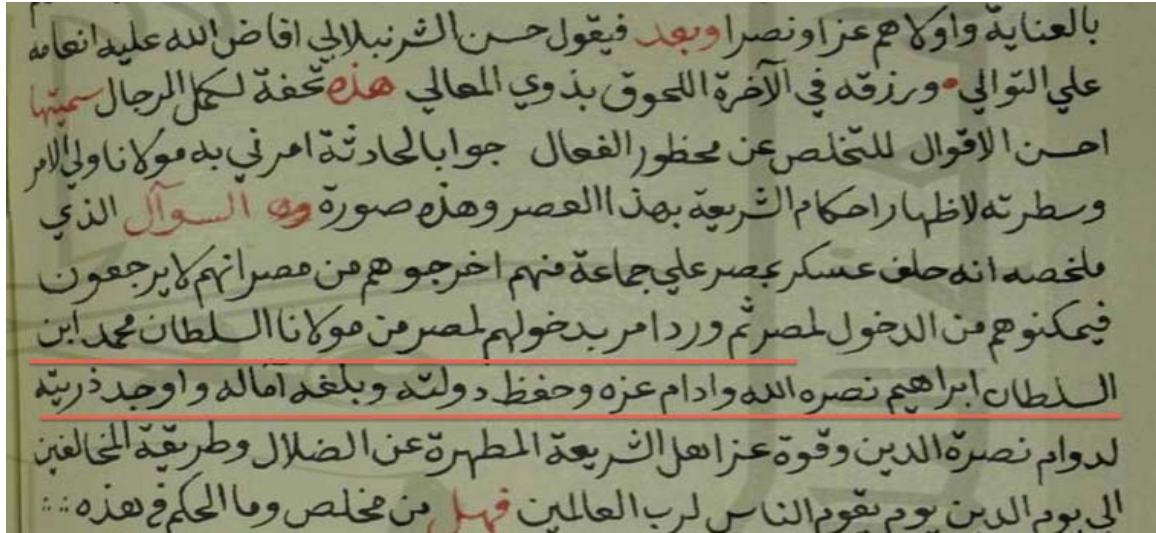 بالعناية واولاهم عزا ونصرا وبعد فيقول حسن الشرنبلالي افاض الله عليه انعامه
علي التوالي ورزقه في الآخرة اللحوق بذوي المعالي هذه تحفة لكمل الرجال سميتها
احسن الاقوال للتخلص عن محظور الفعال جوابا لحادثة امرني به مولانا ولي الامر
وسطرته لاظهار احكام الشريعة بهذا العصر وهذه صورة السوآل الذي
ملخصه انه حلف عسكر بمصر علي جماعة منهم اخرجوهم من مصر انهم لا يرجعون
فيمكنوهم من الدخول لمصر ثم ورد امر بدخولهم لمصر من مولانا السلطان محمد ابن
السلطان ابراهيم نصره الله وادام عزه وحفظ دولته وبلغه آماله واوجد ذريته
لدوام نصرة الدين وقوة عز اهل الشريعة المطهرة عن الضلال وطريقة المخالفين
الي يوم الدين يوم يقوم الناس لرب العالمين فهل من مخلص وما الحكم في هذه